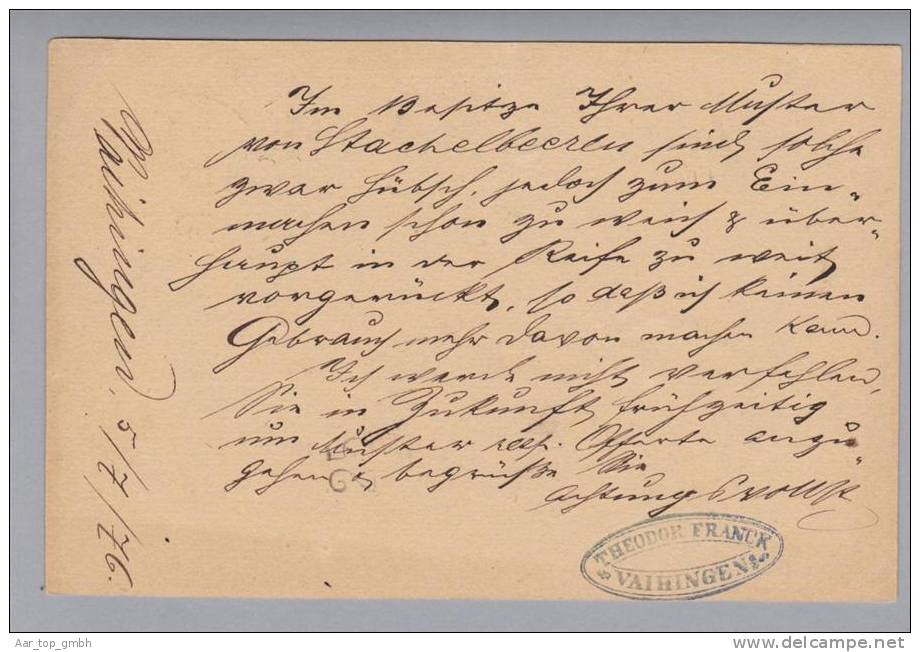 Vaihingen, 5/7/76.
Im Besitze Ihrer Muster
von Stachelbeeren sind solche
zwar hübsch, jedoch zum Ein-
machen schon zu weich & über-
haupt in der Reife zu weit
vorgerückt, so daß ich keinen
Gebrauch mehr davon machen kann.
Ich werde nicht verfehlen,
Sie in Zukunft frühzeitig
um Muster resp. Offerte anzu-
gehen & begrüße Sie
achtungsvollst
THEODOR FRANCK
VAIHINGEN
Aar_top_gmbh
www.delcampe.net